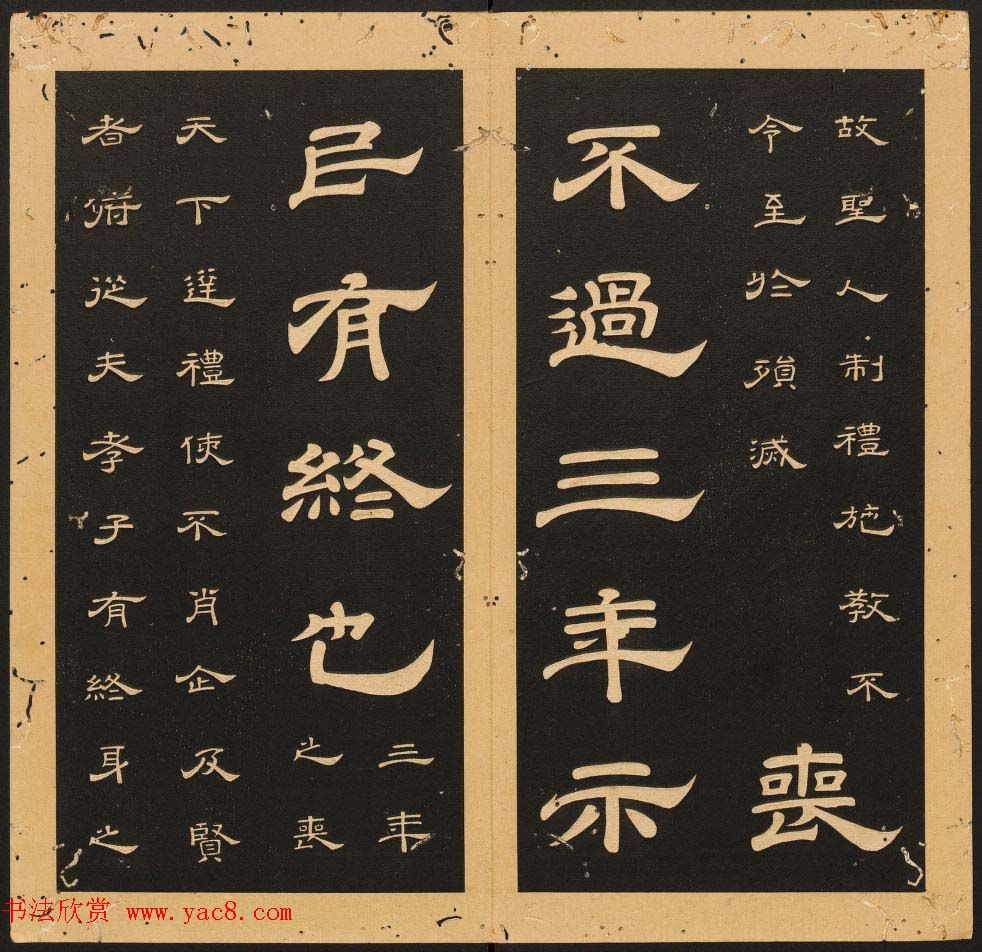 故聖人制禮施教不
令至於殞滅
喪
不過三年示
民有終也
三年
之喪
天下達禮使不肖企及賢
者俯從夫孝子有終身之
书法欣赏 www.yac8.com